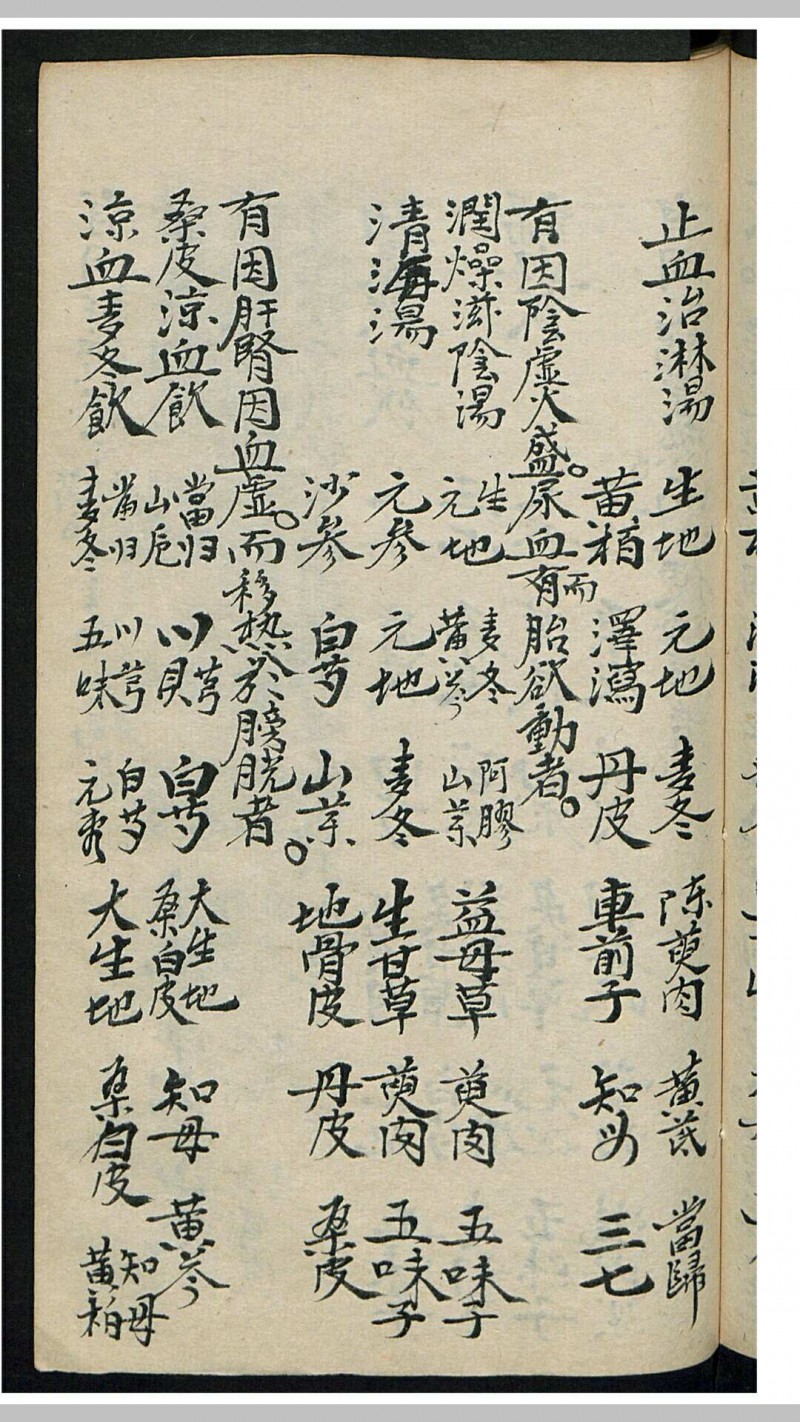 止血治淋湯 生地 元地 麦冬 陈萸肉 黄芪 當歸
黄柏 澤瀉 丹皮 車前子 知母 三七
有因陰虚火盛。尿血而有胎欲動者。
潤燥滋陰湯 生地 元地 麦冬 黄芩 阿膠 山药 益母草 萸肉 五味子
清海湯 元参 元地 麦冬 生甘草 萸肉 五味子
沙参 白芍 山药 地骨皮 丹皮 桑皮
有因肝腎因血虚。而移热於膀胱者。
桑皮涼血飲 當归 山卮 川芎 川貝 白芍 大生地 桑白皮 知母 黄芩
涼血麦冬飲 當归 麦冬 川芎 五味 白芍 元参 大生地 桑白皮 知母 黄柏